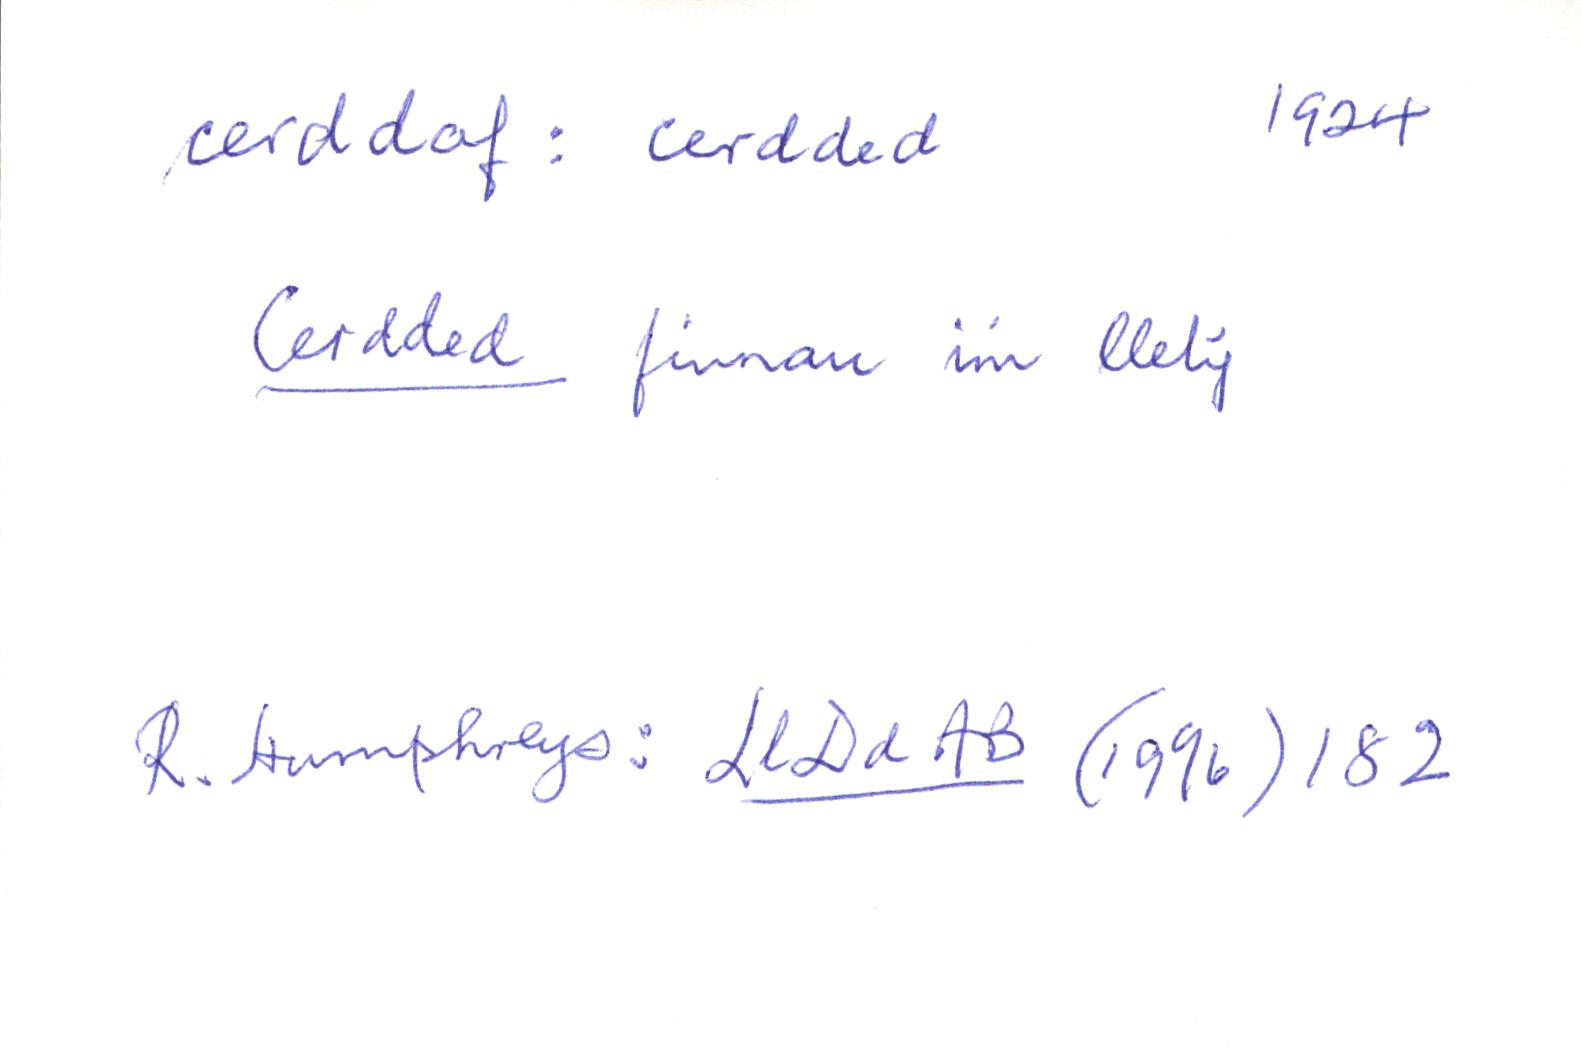 cerddaf: cerdded 1924
Cerdded finnau i'm llety
R. Humphreys: LlDdAB (1996) 182